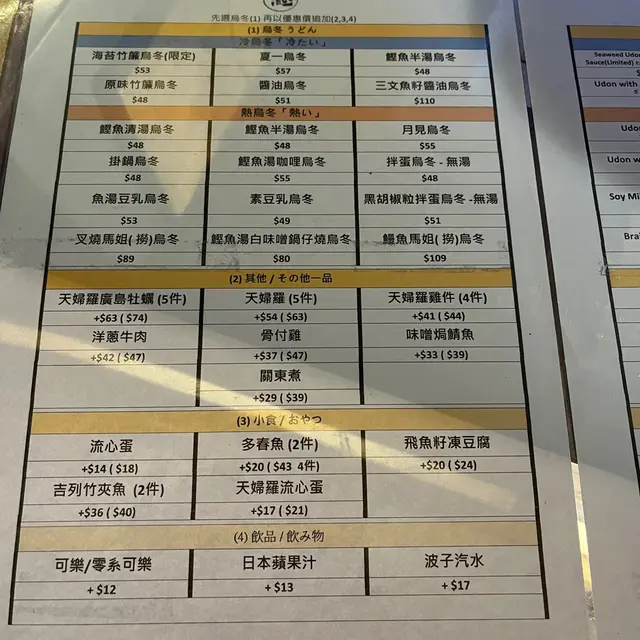 先選烏冬(1) 再以優惠價追加(2,3,4)
(1) 烏冬 うどん
冷烏冬「冷たい」
海苔竹簾烏冬(限定) 夏一烏冬 鰹魚半湯烏冬
$53 $57 $48
原味竹簾烏冬 醬油烏冬 三文魚籽醬油烏冬
$48 $51 $110
熱烏冬「熱い」
鰹魚清湯烏冬 鰹魚半湯烏冬 月見烏冬
$48 $48 $55
掛鍋烏冬 鰹魚湯咖哩烏冬 拌蛋烏冬 - 無湯
$48 $55 $48
魚湯豆乳烏冬 素豆乳烏冬 黑胡椒粒拌蛋烏冬 -無湯
$53 $49 $51
叉燒馬姐( 撈)烏冬 鰹魚湯白味噌鍋仔燒烏冬 鰻魚馬姐( 撈)烏冬
$89 $80 $109
(2) 其他 / その他一品
天婦羅廣島牡蠣 (5件) 天婦羅 (5件) 天婦羅雞件 (4件)
+$63 ( $74) +$54 ( $63) +$41 ( $44)
洋蔥牛肉 骨付雞 味噌焗鯖魚
+$42 ( $47) +$37 ( $47) +$33 ( $39)
關東煮
+$29 ( $39)
(3) 小食 / おやつ
流心蛋 多春魚 (2件) 飛魚籽凍豆腐
+$14 ( $18) +$20 ( $43 4件) +$20 ( $24)
吉列竹夾魚 (2件) 天婦羅流心蛋
+$36 ( $40) +$17 ( $21)
(4) 飲品 / 飲み物
可樂/零系可樂 日本蘋果汁 波子汽水
+ $12 + $13 + $17
Seaweed Udon
Sauce(Limited)
Udon with
Udon
Udon w
Soy Mi
Brai